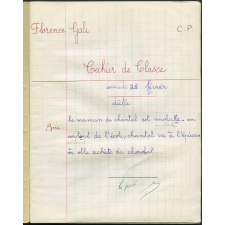 Florence Gali C.P
Cahier de Classe
samedi 28 février
dictée
la maman de chantal est malade. en
sortant de l'école, chantal va à l'épicerie
elle achète du chocolat.